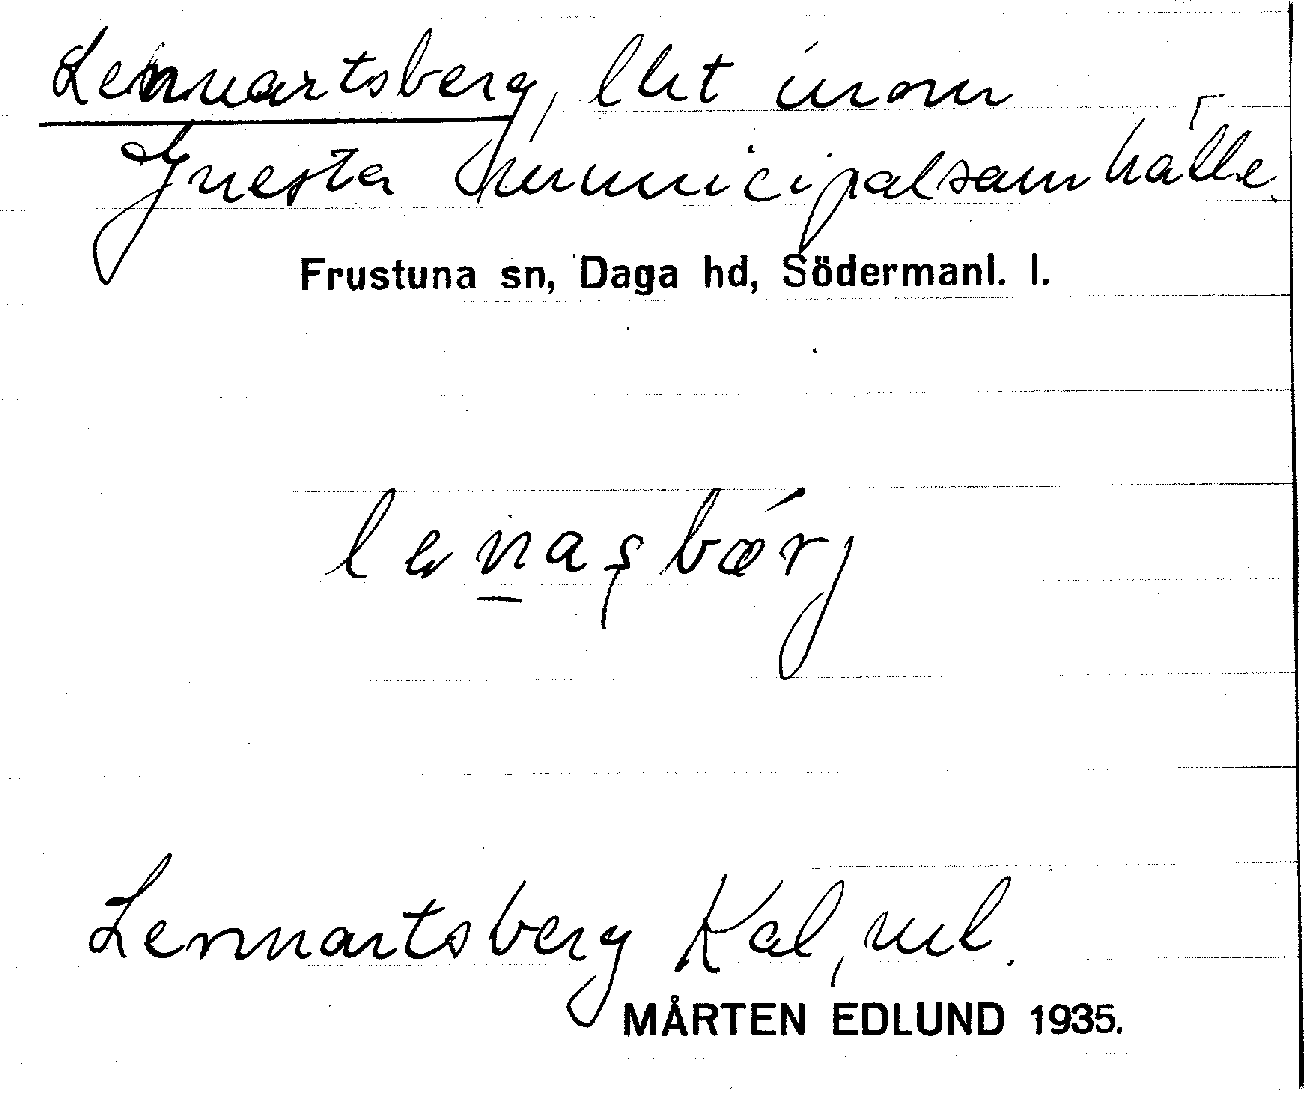 Lennartsberg, lht inom
Gnesta municipalsamhälle.
Frustuna sn, Daga hd, Södermanl. l.
lenaşbǽrj
Lennartsberg Kal, ml.
MÅRTEN EDLUND 1935.